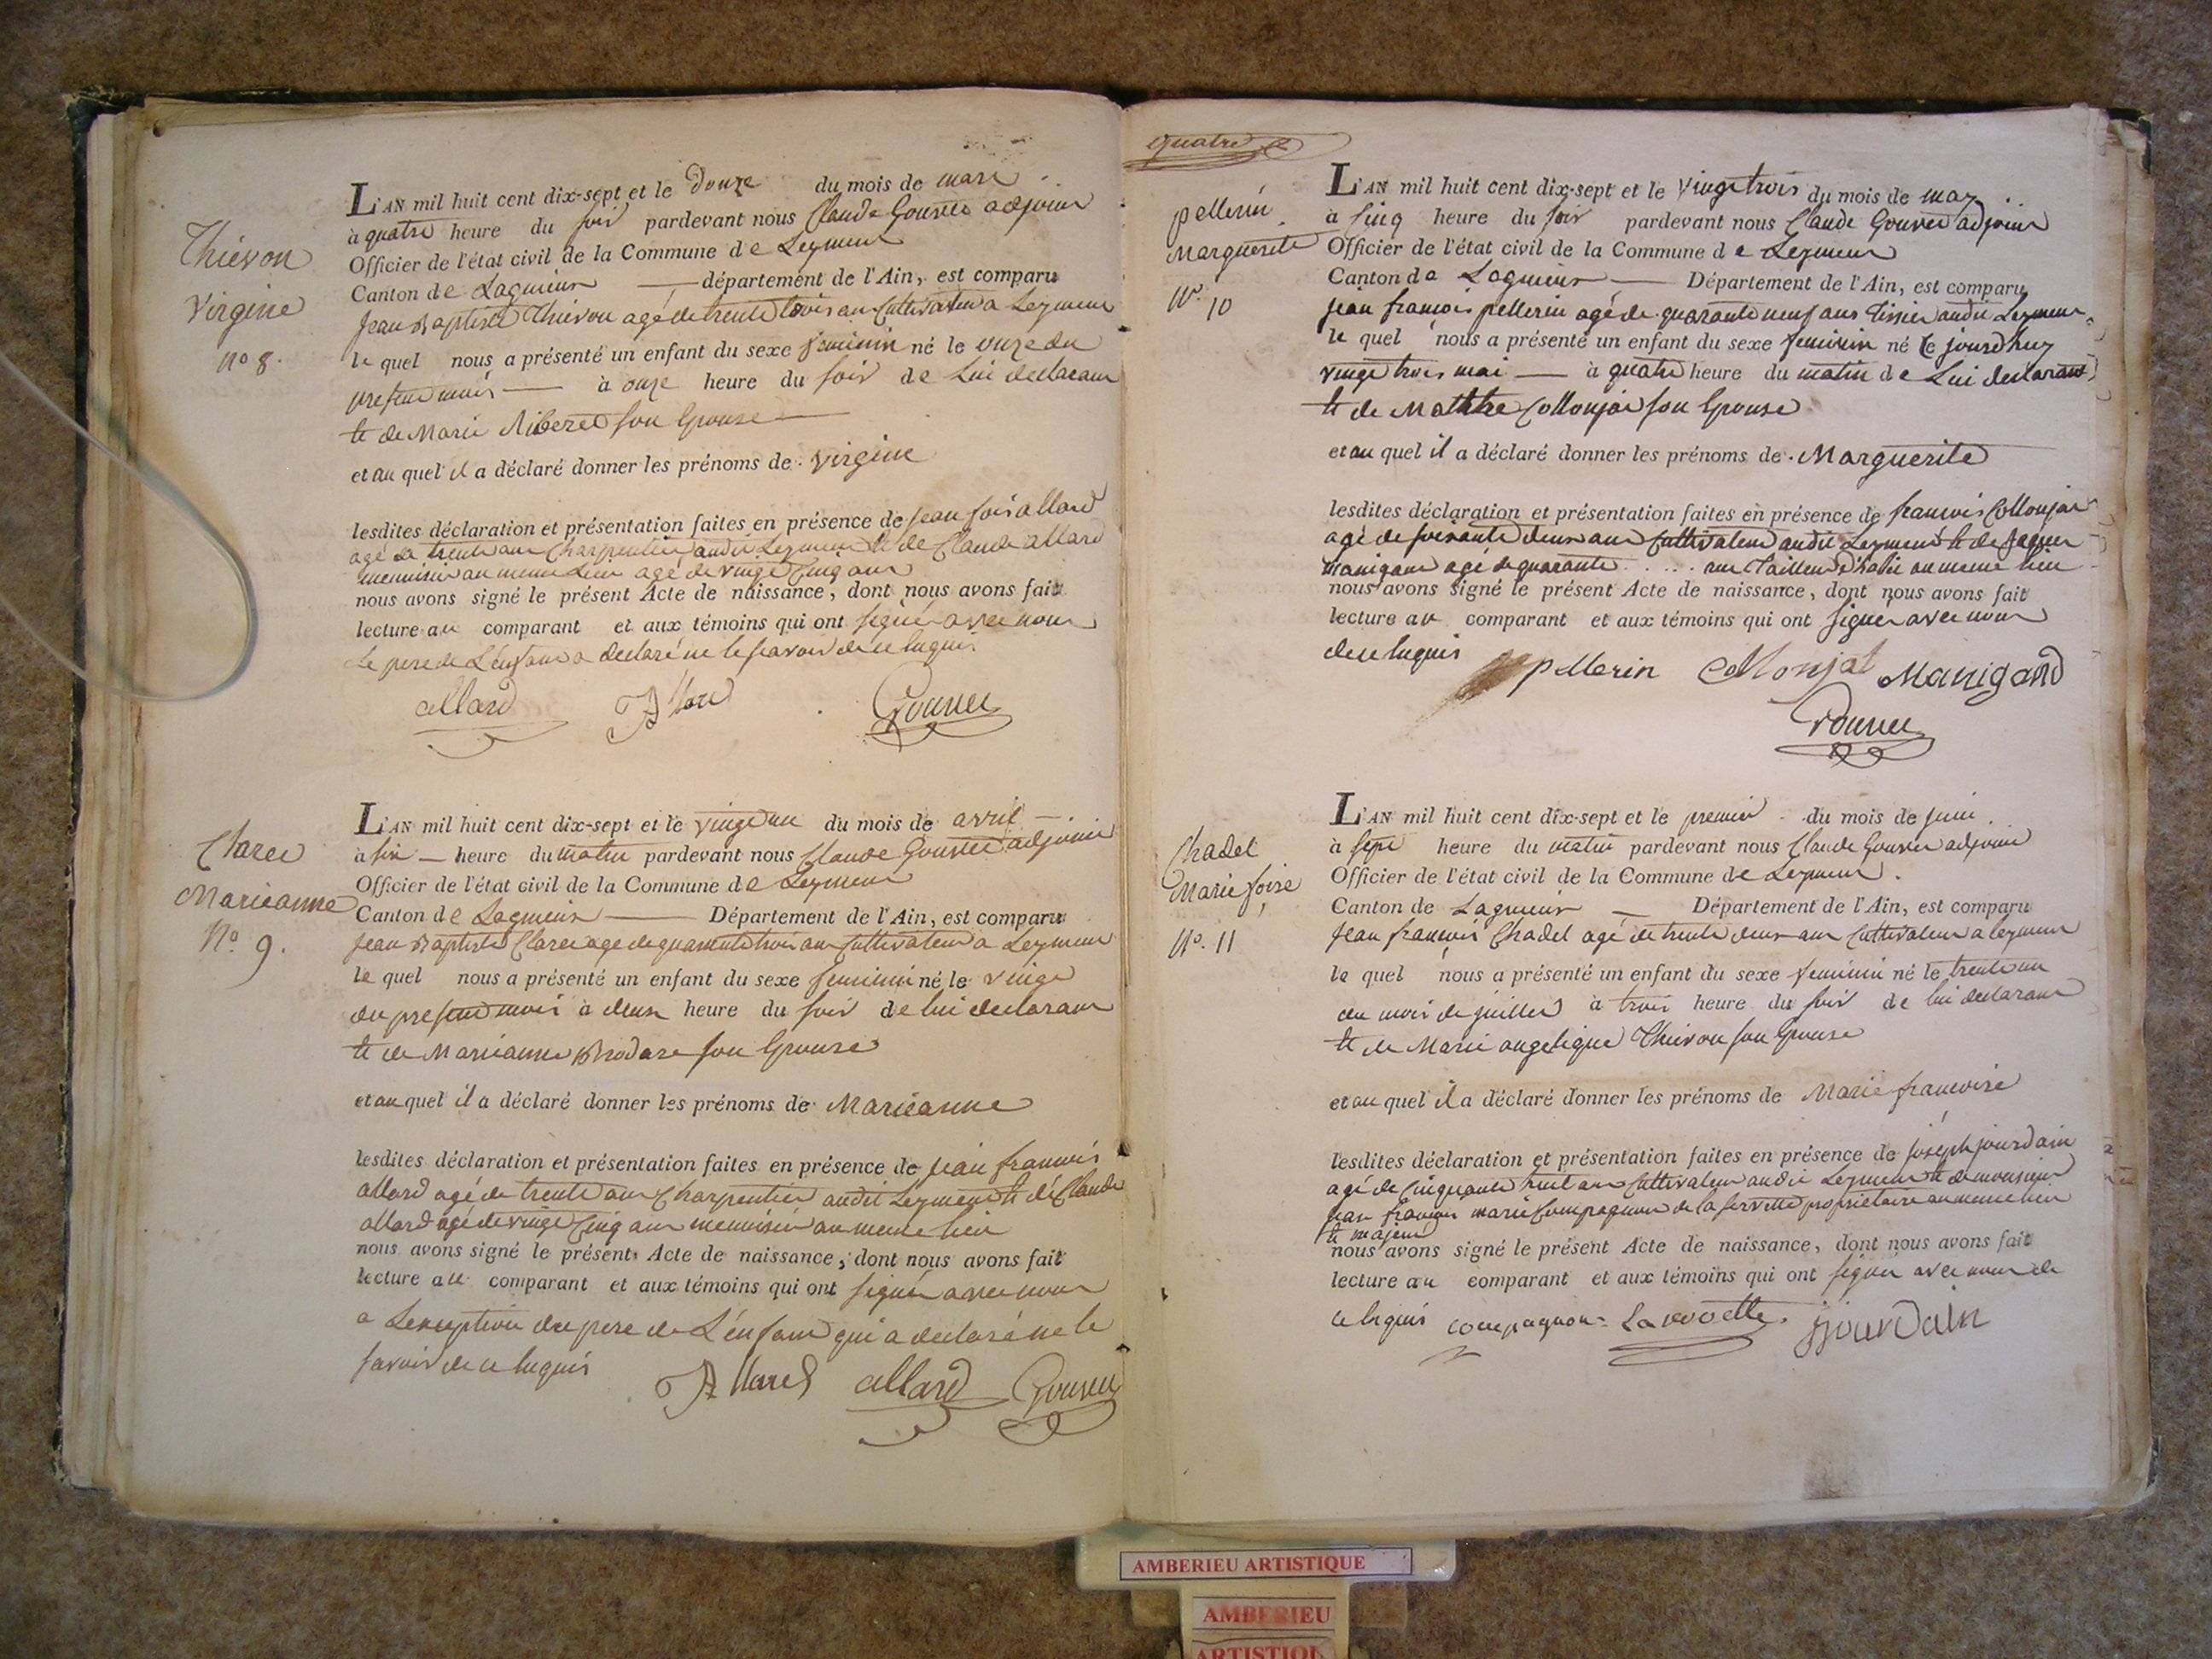 Thievon
Virginie
no 8.
L'AN mil huit cent dix-sept et le Douze du mois de mars
à quatre heure du soir pardevant nous Claude Gourret adjoint
Officier de l'état civil de la Commune de Leyment
Canton de Lagnieux département de l'Ain, est comparu
Jean Baptiste Thievon agé de trente trois ans Cultivateur a Leyment
le quel nous a présenté un enfant du sexe feminin né le onze du
present mois à onze heure du soir de Lui declarant
et de Marie son Epouse
et au quel il a déclaré donner les prénoms de Virginie
lesdites déclaration et présentation faites en présence de Jean fois allard
agé de trente ans Charpentier audit Leyment et de Claude allard
menuisier au meme Lieu agé de vingt Cinq ans
nous avons signé le présent Acte de naissance, dont nous avons fait
lecture au comparant et aux témoins qui ont signé avec nous
Le pere de L'enfant a declaré ne le savoir de ce Enquis
allard Allard Gourret
Claret
Marieanne
No. 9.
L'AN mil huit cent dix-sept et le vingt un du mois de avril
à six heure du matin pardevant nous Claude Gourret adjoint
Officier de l'état civil de la Commune de Leyment
Canton de Lagnieux Département de l'Ain, est comparu
Jean Baptiste Claret age de quarante trois ans Cultivateur a Leyment
le quel nous a présenté un enfant du sexe feminin né le vingt
du present mois à deux heure du soir de lui declarant
et de Marieanne son Epouse
et au quel il a déclaré donner les prénoms de Marieanne
lesdites déclaration et présentation faites en présence de Jean francois
allard agé de trente ans Charpentier audit Leyment et de Claude
allard agé de vingt Cinq ans menuisier au meme lieu
nous avons signé le présent Acte de naissance, dont nous avons fait
lecture au comparant et aux témoins qui ont signé avec nous
a Lexception du pere de L'enfant qui a declaré ne le
savoir de ce Enquis
Allard allard Gourret
quatre
pellerin
Marguerite
No. 10
L'AN mil huit cent dix-sept et le vingt trois du mois de may
à Cinq heure du soir pardevant nous Claude Gourret adjoint
Officier de l'état civil de la Commune de Leyment
Canton de Lagnieux Département de l'Ain, est comparu
Jean francois pellerin agé de quarante neuf ans Tissier audit Leyment
le quel nous a présenté un enfant du sexe feminin né Ce jourdhuy
vingt trois mai à quatre heure du matin de Lui declarant
et de Collonjat son Epouse
et au quel il a déclaré donner les prénoms de Marguerite
lesdites déclaration et présentation faites en présence de francois Collonjat
agé de soixante deux ans Cultivateur audit Leyment et de
Manigand agé de quarante ans Tailleur au meme lieu
nous avons signé le présent Acte de naissance, dont nous avons fait
lecture au comparant et aux témoins qui ont signé avec nous
de ce Enquis
pellerin Collonjat Manigand
Gourret
Chadel
Marie foise
No. 11
L'AN mil huit cent dix-sept et le premier du mois de juin
à sept heure du matin pardevant nous Claude Gourret adjoint
Officier de l'état civil de la Commune de Leyment
Canton de Lagnieux Département de l'Ain, est comparu
Jean francois Chadel agé de trente deux ans Cultivateur a Leyment
le quel nous a présenté un enfant du sexe feminin né le trente un
du mois de à trois heure du soir de lui declarant
et de Marie angelique Thievon son Epouse
et au quel il a déclaré donner les prénoms de Marie francoise
lesdites déclaration et présentation faites en présence de joseph jourdain
agé de Cinquante huit ans Cultivateur audit Leyment et de monsieur
jean francois marie Compagnon de la proprietaire au meme lieu
et majeur
nous avons signé le présent Acte de naissance, dont nous avons fait
lecture au comparant et aux témoins qui ont signé avec nous de
ce Enquis Compagnon jjourdain
AMBERIEU ARTISTIQUE
AMBERIEU